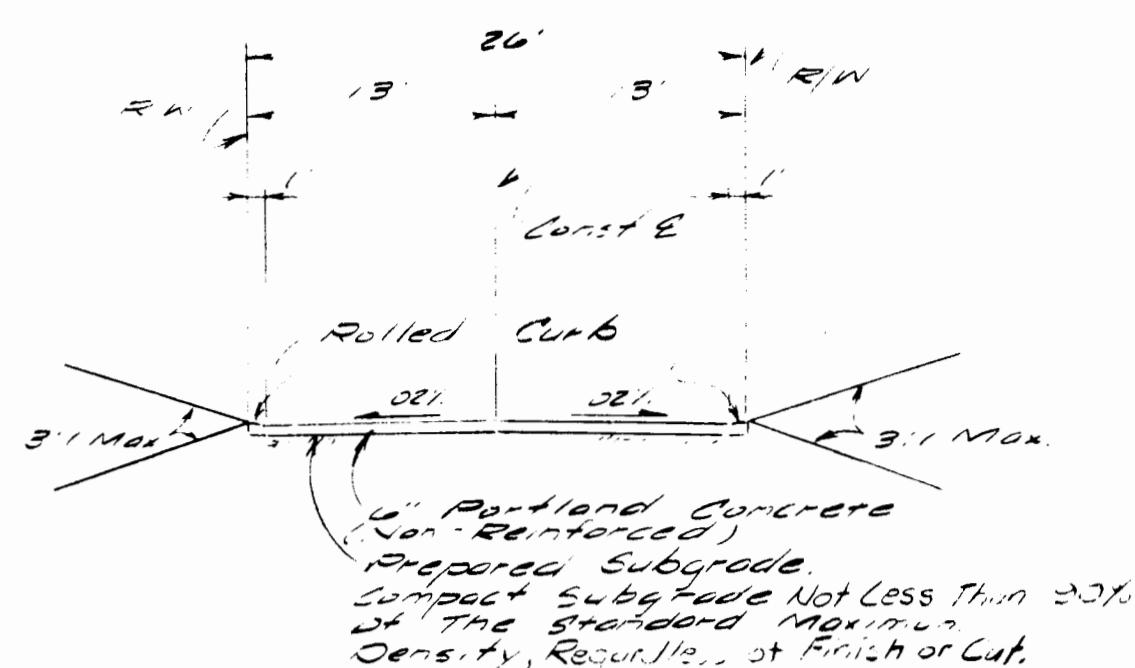 26'
13' 13'
R/W R/W
1' 1'
Const ℄
Rolled Curb
.02% .02%
3:1 Max 3:1 Max.
6" Portland Concrete
(Non-Reinforced)
Prepared Subgrade.
Compact Subgrade Not Less Than
of The Standard Maximum
Density, Regardless of Finish or Cut.